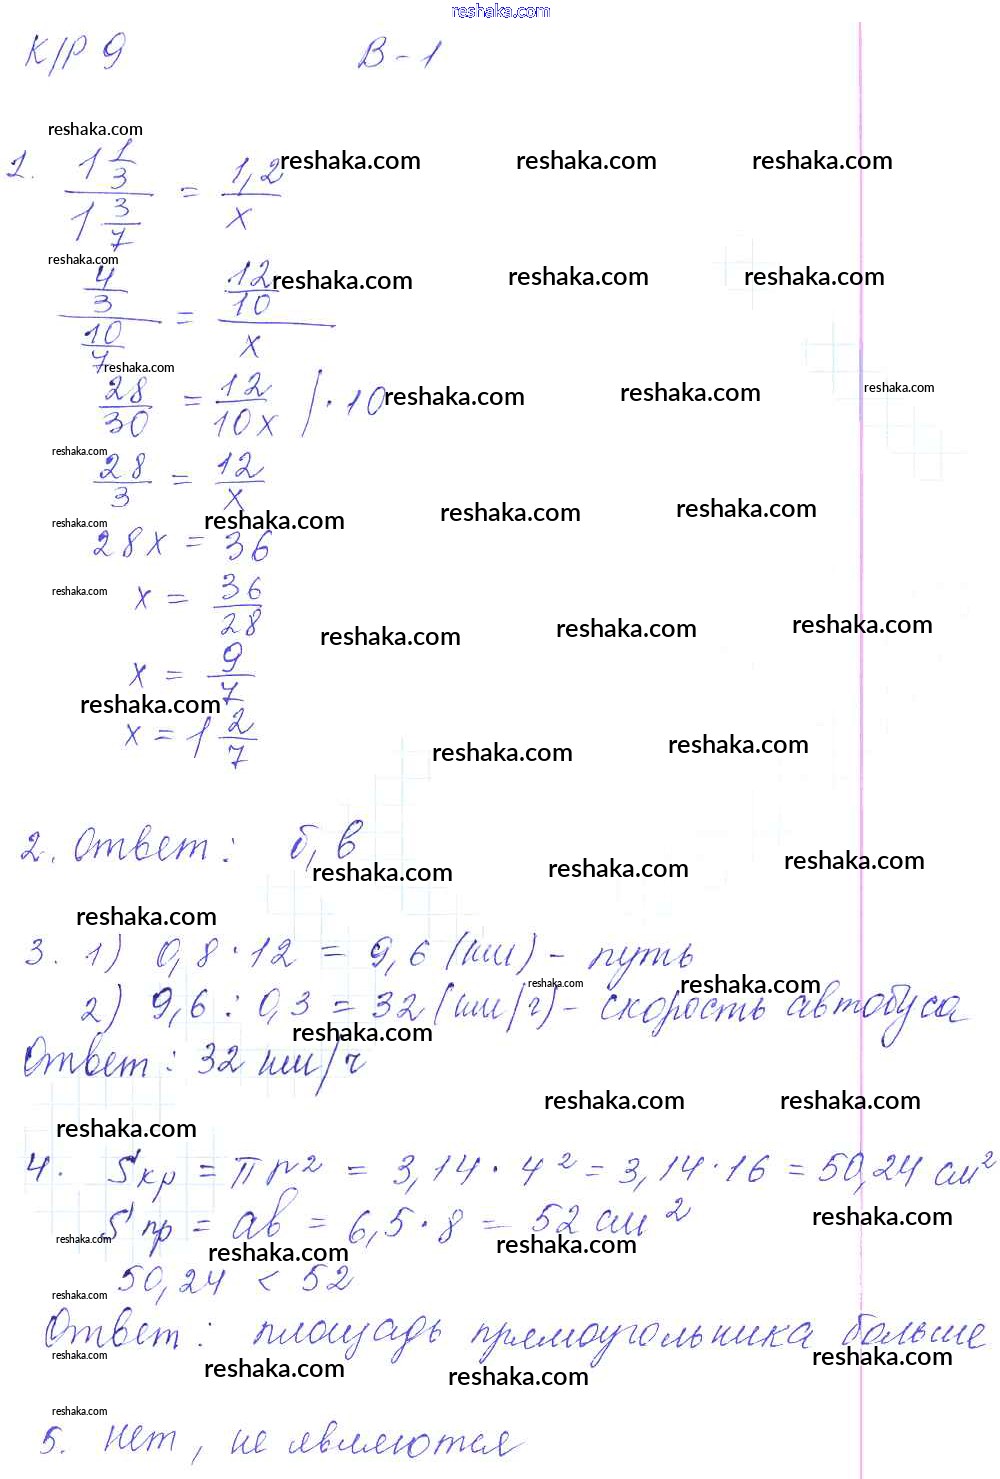 reshaka.com
К/Р 9 В-1
reshaka.com
1. 1 1/3 / 1 3/7 = 1,2 / x reshaka.com reshaka.com reshaka.com
reshaka.com
4/3 / 10/7 = 12/10 / x reshaka.com reshaka.com reshaka.com
reshaka.com
28/30 = 12/10x | · 10 reshaka.com reshaka.com reshaka.com
reshaka.com
28/3 = 12/x
reshaka.com reshaka.com reshaka.com
reshaka.com
28x = 36
reshaka.com
x = 36/28
reshaka.com reshaka.com reshaka.com
x = 9/7
reshaka.com
x = 1 2/7
reshaka.com reshaka.com
2. Ответ: б, в
reshaka.com reshaka.com reshaka.com
reshaka.com
3. 1) 0,8 · 12 = 9,6 (км) - путь
reshaka.com reshaka.com
2) 9,6 : 0,3 = 32 (км/ч) - скорость автобуса
reshaka.com
Ответ: 32 км/ч
reshaka.com reshaka.com
reshaka.com
4. Sкр = πr² = 3,14 · 4² = 3,14 · 16 = 50,24 см²
Sпр = ab = 6,5 · 8 = 52 см²
reshaka.com
reshaka.com reshaka.com reshaka.com
50,24 < 52
reshaka.com
Ответ: площадь прямоугольника больше
reshaka.com reshaka.com reshaka.com reshaka.com
reshaka.com
5. Нет, не являются